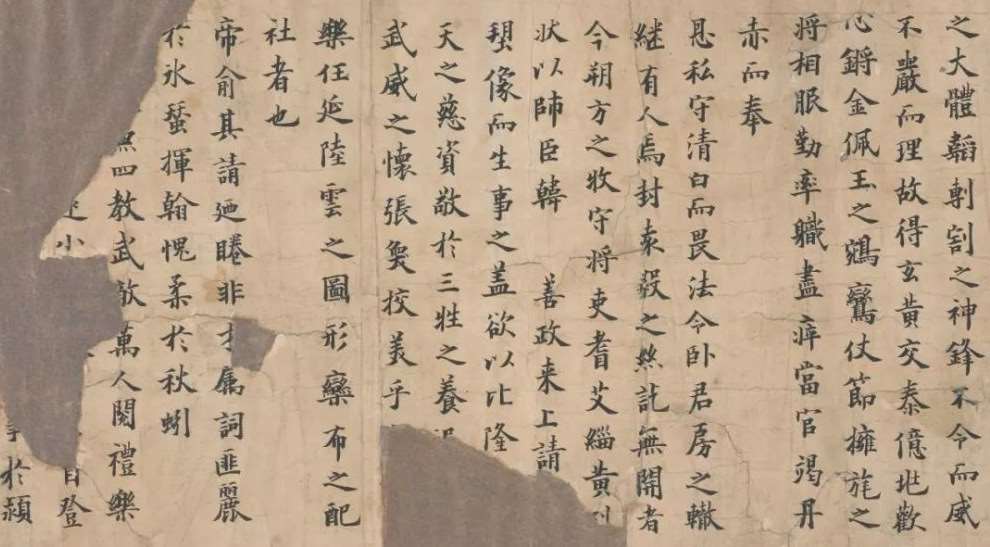 之大體韜剸割之神鋒不令而威
不嚴而理故得玄黄交泰億兆歡
心鏘金佩玉之鵷鸞仗節擁旄之
將相服勤率職盡瘁當官竭丹
赤而奉
恩私守清白而畏法令卧君房之轍
継有人焉封袁毅之絲訖無開者
今朔方之牧守將吏耆艾緇黄列
狀以師臣韓 善政来上請
塑像而生事之盖欲以比隆
天之慈資敬於三牲之養
武威之懷張奐挍美乎
樂任延陸雲之圖形欒布之配
社者也
帝俞其請廼睠非才属詞匪麗
於氷蠶揮翰愧柔於秋蚓
無四教武敵萬人閱禮樂
小 自登
於頴